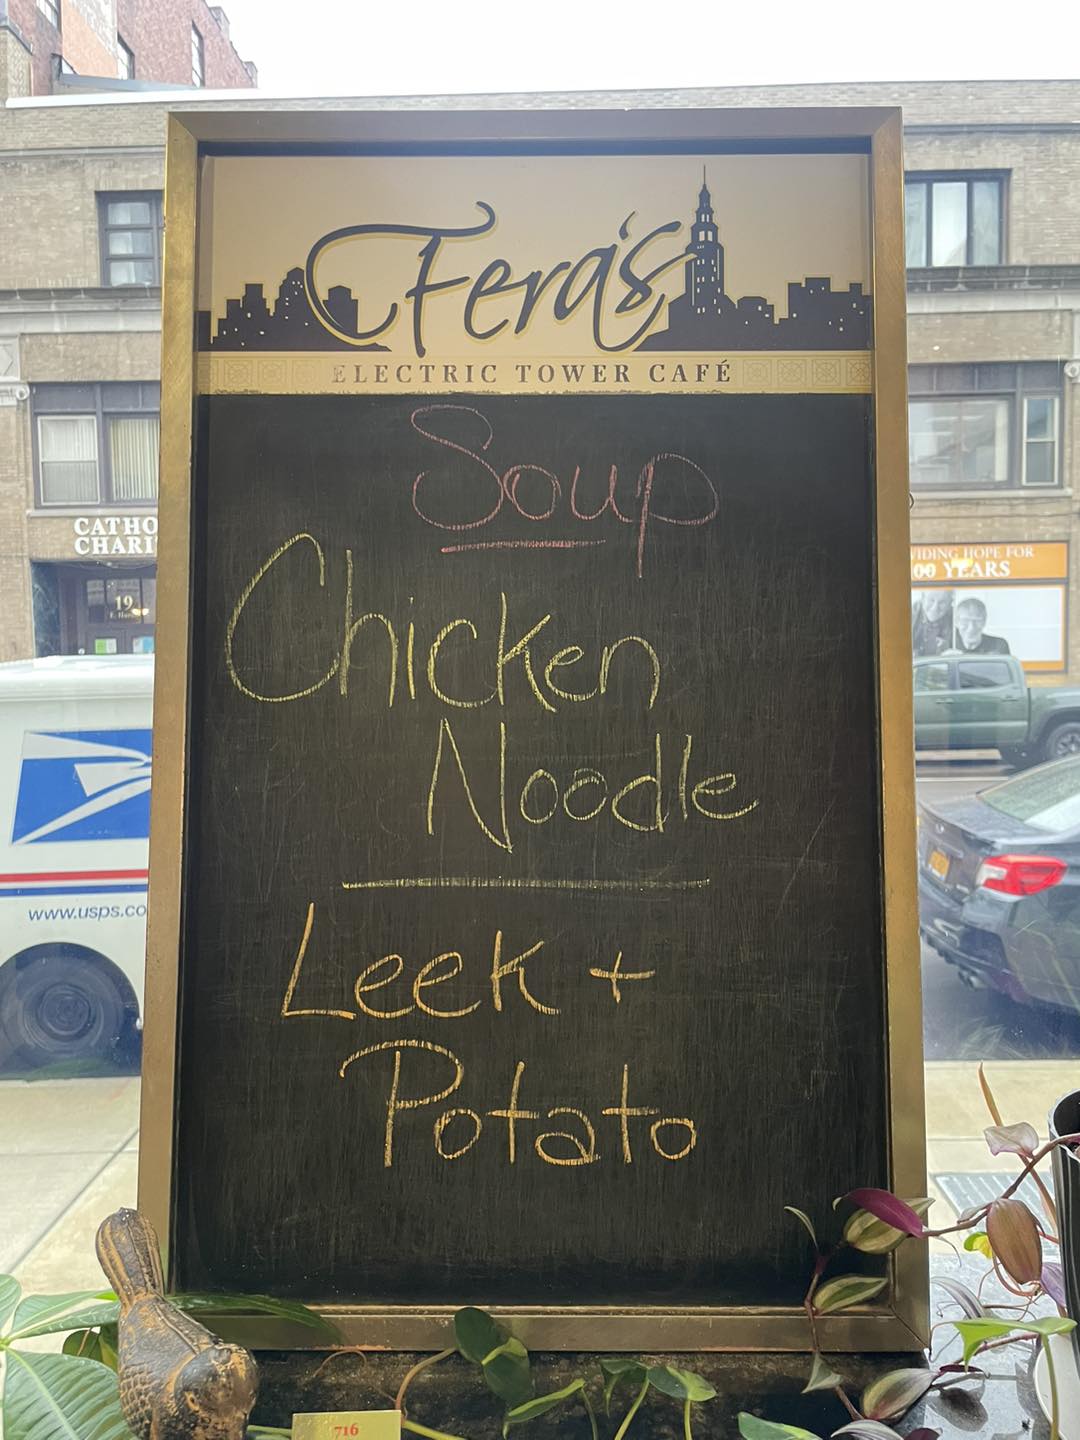 Fera's
ELECTRIC TOWER CAFÉ
Soup
Chicken
Noodle
Leek +
Potato
CATHO
CHARI
19
VIDING HOPE FOR
00 YEARS
www.usps.co
716